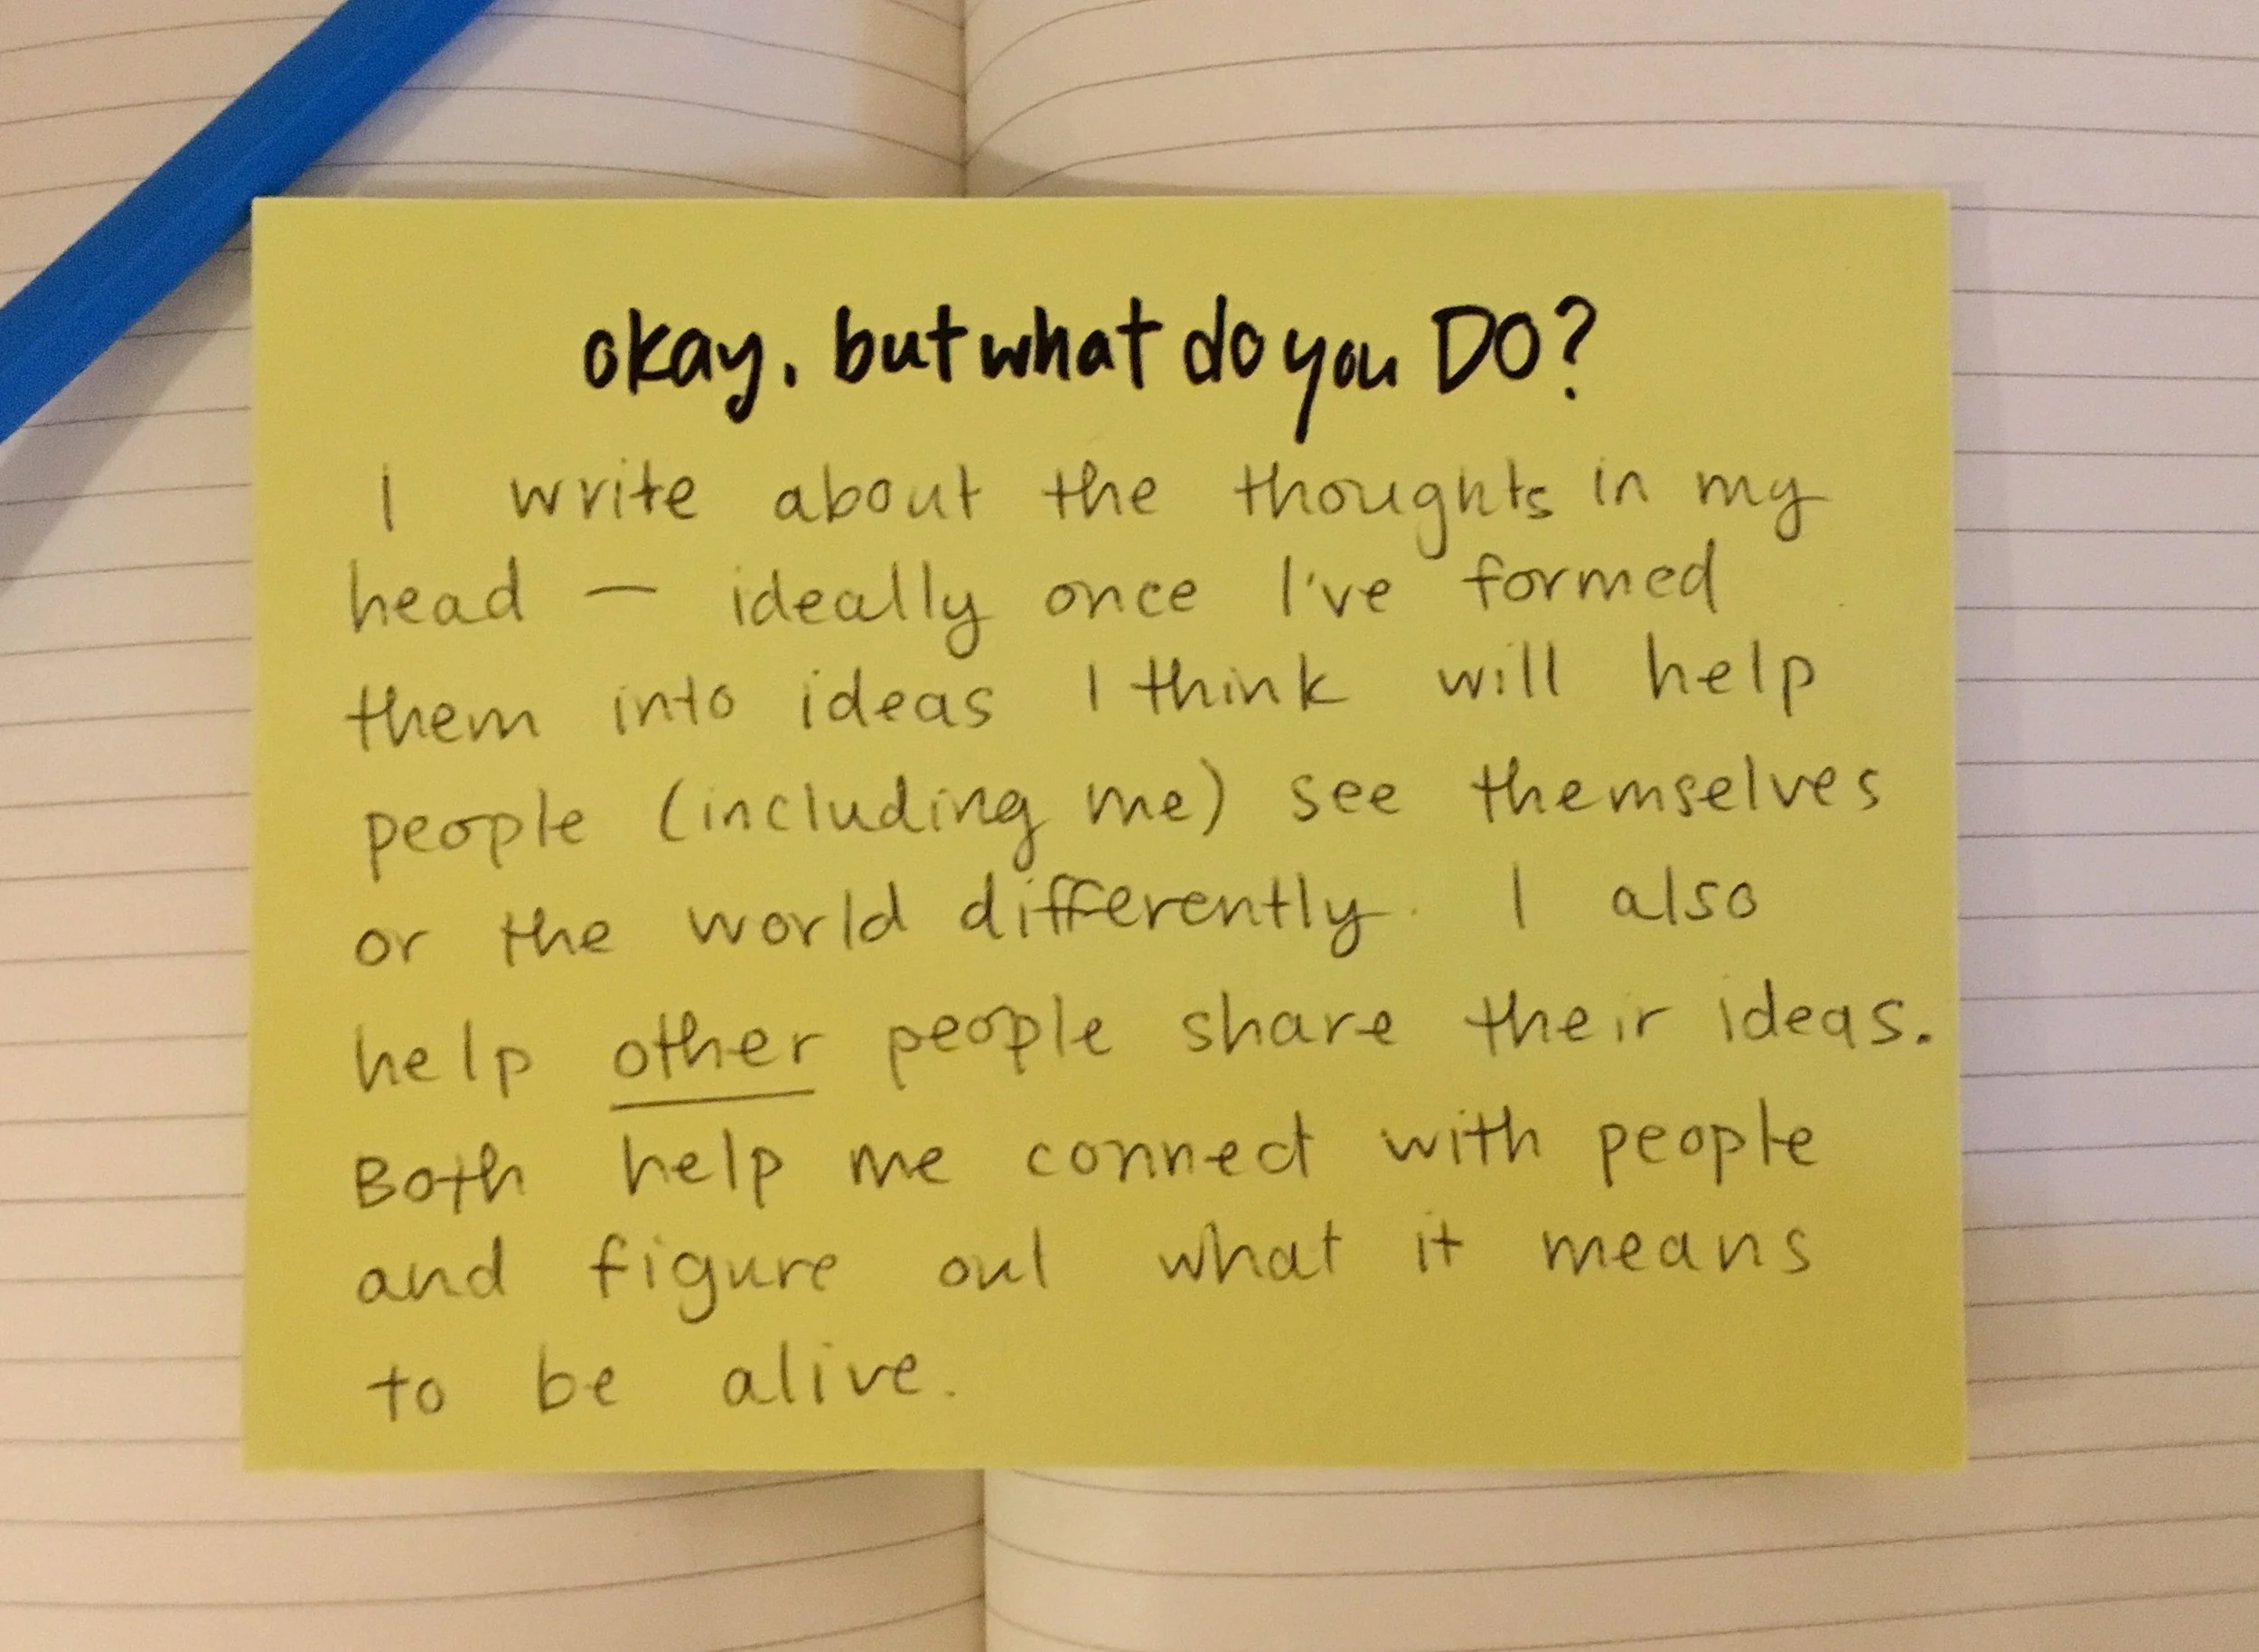 okay. but what do you DO?
I write about the thoughts in my
head — ideally once I've formed
them into ideas I think will help
people (including me) see themselves
or the world differently. I also
help other people share their ideas.
Both help me connect with people
and figure out what it means
to be alive.